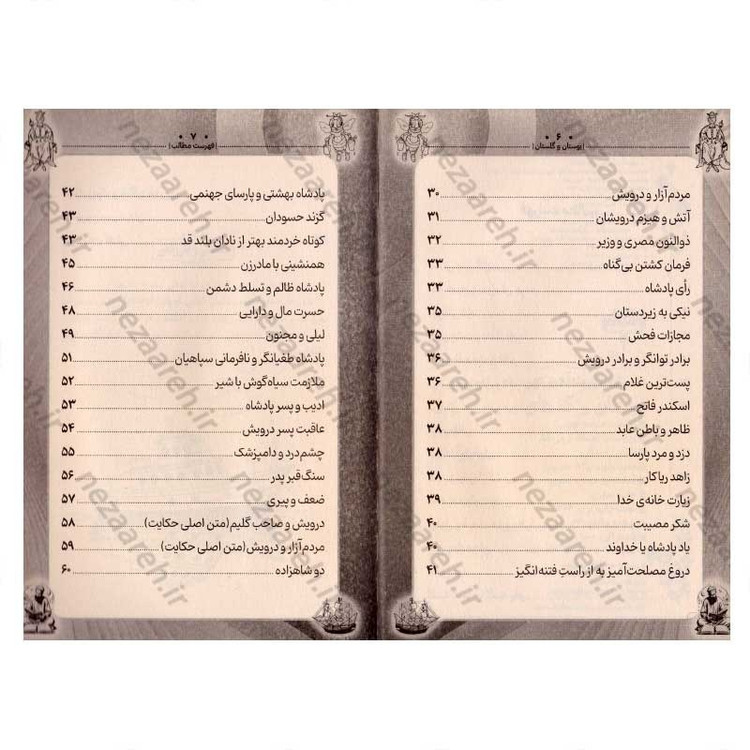 ۰ ۶ ۰
|بوستان و گلستان|
مردم‌آزار و درویش ۳۰
آتش و هیزم درویشان ۳۱
ذوالنون مصری و وزیر ۳۲
فرمان کشتن بی‌گناه ۳۳
رأی پادشاه ۳۳
نیکی به زیردستان ۳۵
مجازات فحش ۳۵
برادر توانگر و برادر درویش ۳۶
پست‌ترین غلام ۳۶
اسکندر فاتح ۳۷
ظاهر و باطن عابد ۳۸
دزد و مرد پارسا ۳۸
زاهد ریاکار ۳۸
زیارت خانه‌ی خدا ۳۹
شکر مصیبت ۴۰
یاد پادشاه یا خداوند ۴۰
دروغ مصلحت‌آمیز به از راستِ فتنه‌انگیز ۴۱
۰ ۷ ۰
|فهرست مطالب|
پادشاه بهشتی و پارسای جهنمی ۴۲
گزند حسودان ۴۳
کوتاه خردمند بهتر از نادان بلند قد ۴۳
همنشینی با مادرزن ۴۵
پادشاه ظالم و تسلط دشمن ۴۶
حسرت مال و دارایی ۴۸
لیلی و مجنون ۴۹
پادشاه طغیانگر و نافرمانی سپاهیان ۵۱
ملازمت سیاه‌گوش با شیر ۵۲
ادیب و پسر پادشاه ۵۳
عاقبت پسر درویش ۵۴
چشم‌درد و دامپزشک ۵۵
سنگ‌قبر پدر ۵۶
ضعف و پیری ۵۷
درویش و صاحب گلیم(متن اصلی حکایت) ۵۸
مردم‌آزار و درویش(متن اصلی حکایت) ۵۹
دو شاهزاده ۶۰
nezaareh.ir